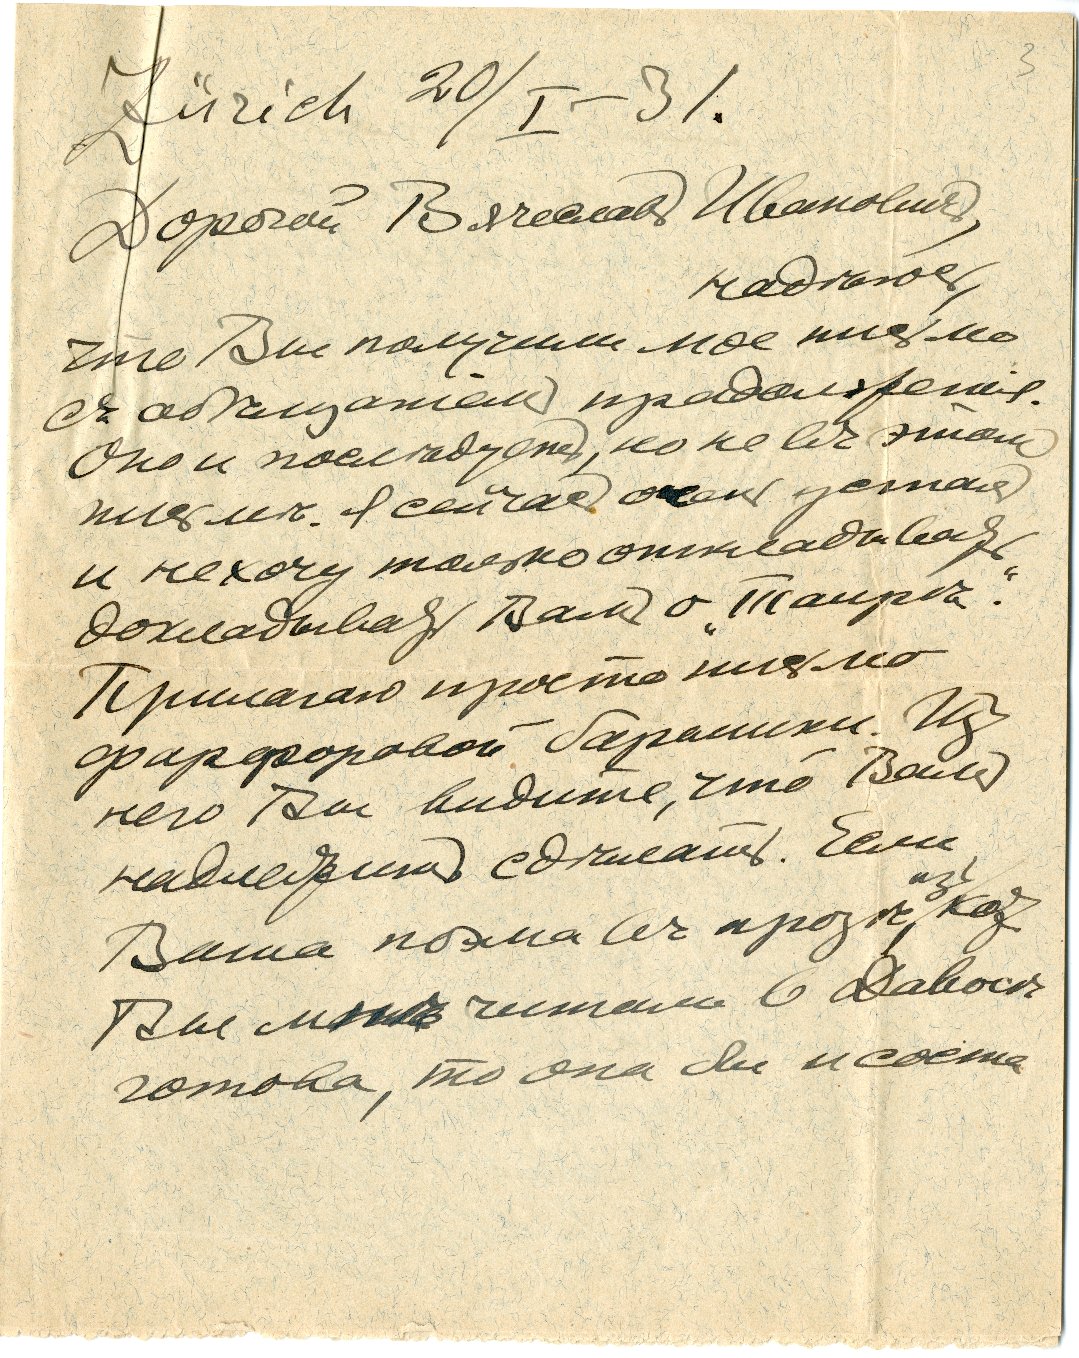 3
Zürich 20/I–31.
Дорогой Вячеславъ Ивановичъ,
надѣюсь,
что Вы получили мое письмо
съ обѣщаніемъ продолженія.
Оно и послѣдуетъ, но не въ этомъ
письмѣ. Я сейчасъ очень усталъ
и не хочу только откладывать
докладывать Вамъ о „Таирѣ“.
Прилагаю просто письмо
фарфоровой барышни. Из
него Вы видите, что Вамъ
надлежитъ сдѣлать. Если
Ваша поэма въ прозѣ, изъ коз
Вы мнѣ читали в Давосѣ
готова, то она бы и соста